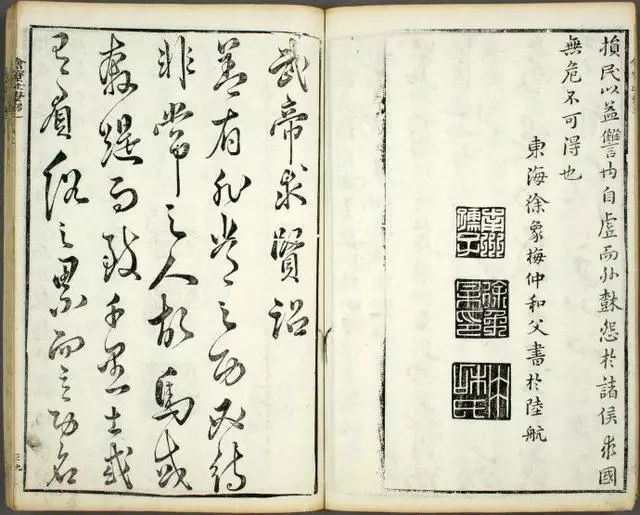 損民以益讐內自虛而外樹怨於諸侯求國
無危不可得也
東海徐象梅仲和父書於陸航
南州孺子
武帝求賢詔
蓋有非常之功必待
非常之人故馬或
奔踶而致千里士或
有負俗之累而立功名